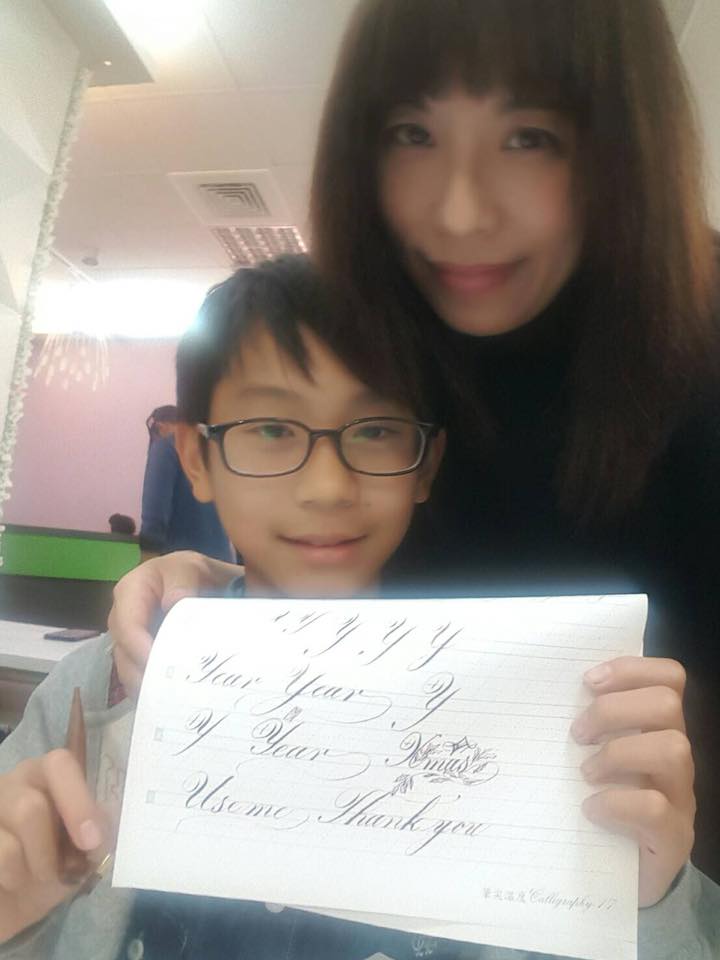 Y Y Y Y Y
Year Year Y
Y Year Xmas
Use me Thank you
筆尖溫度 Calligraphy. 17